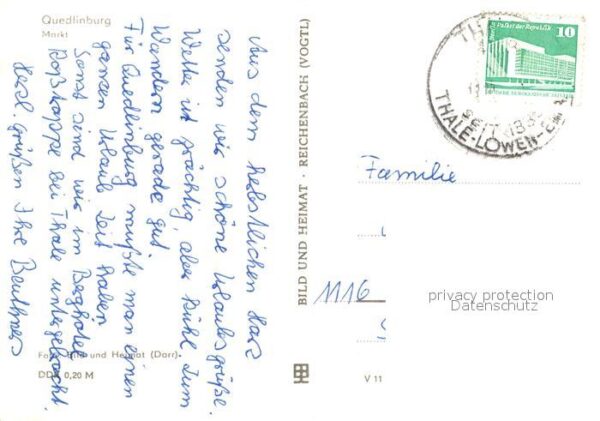 Quedlinburg
Markt
Aus dem herbstlichen Harz
senden wir schöne Urlaubsgrüße.
Wetter ist prächtig, aber kühl. Zum
Wandern gerade gut.
Für Quedlinburg müßte man einen
ganzen Urlaub Zeit haben.
Sonst sind wir im Berghotel
Roßtrappe bei Thale untergebracht.
Herzl. Grüßen Ihre
Foto: Bild und Heimat (Darr)
DDR 0,20 M
BILD UND HEIMAT · REICHENBACH (VOGTL)
V 11
10
Palast der Republik
SEIT 183
THALE-LÖWEN-
Familie
1116
privacy protection
Datenschutz